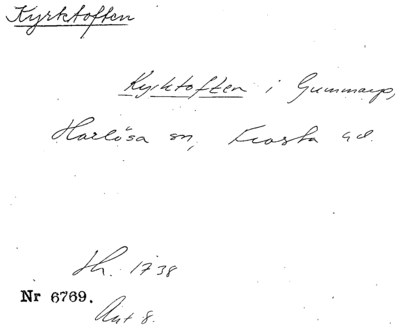 Kyrktoften
Kyrktoften i Gummarp,
Harlösa sn, Frosta hd.
Sk. 1738
Nr 6769.
Akt 8.